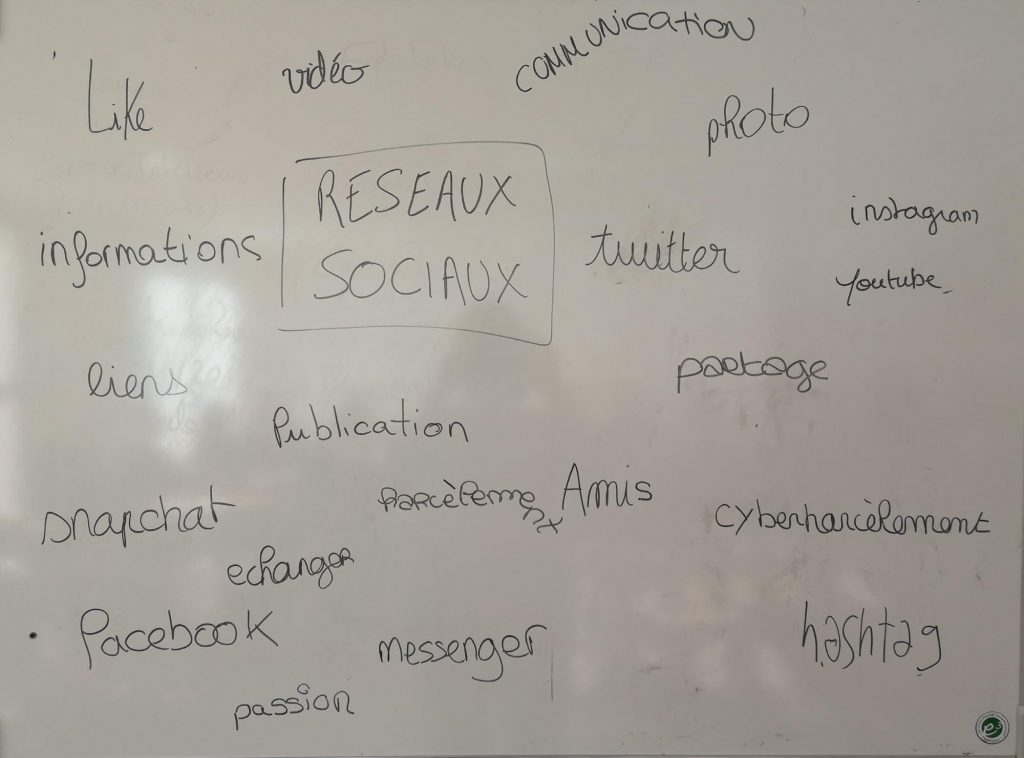 Like
vidéo
COMMUNICATION
photo
RESEAUX
SOCIAUX
informations
twitter
instagram
Youtube
liens
partage
Publication
snapchat
harcèlement
Amis
cyberharcèlement
echanger
facebook
messenger
hashtag
passion